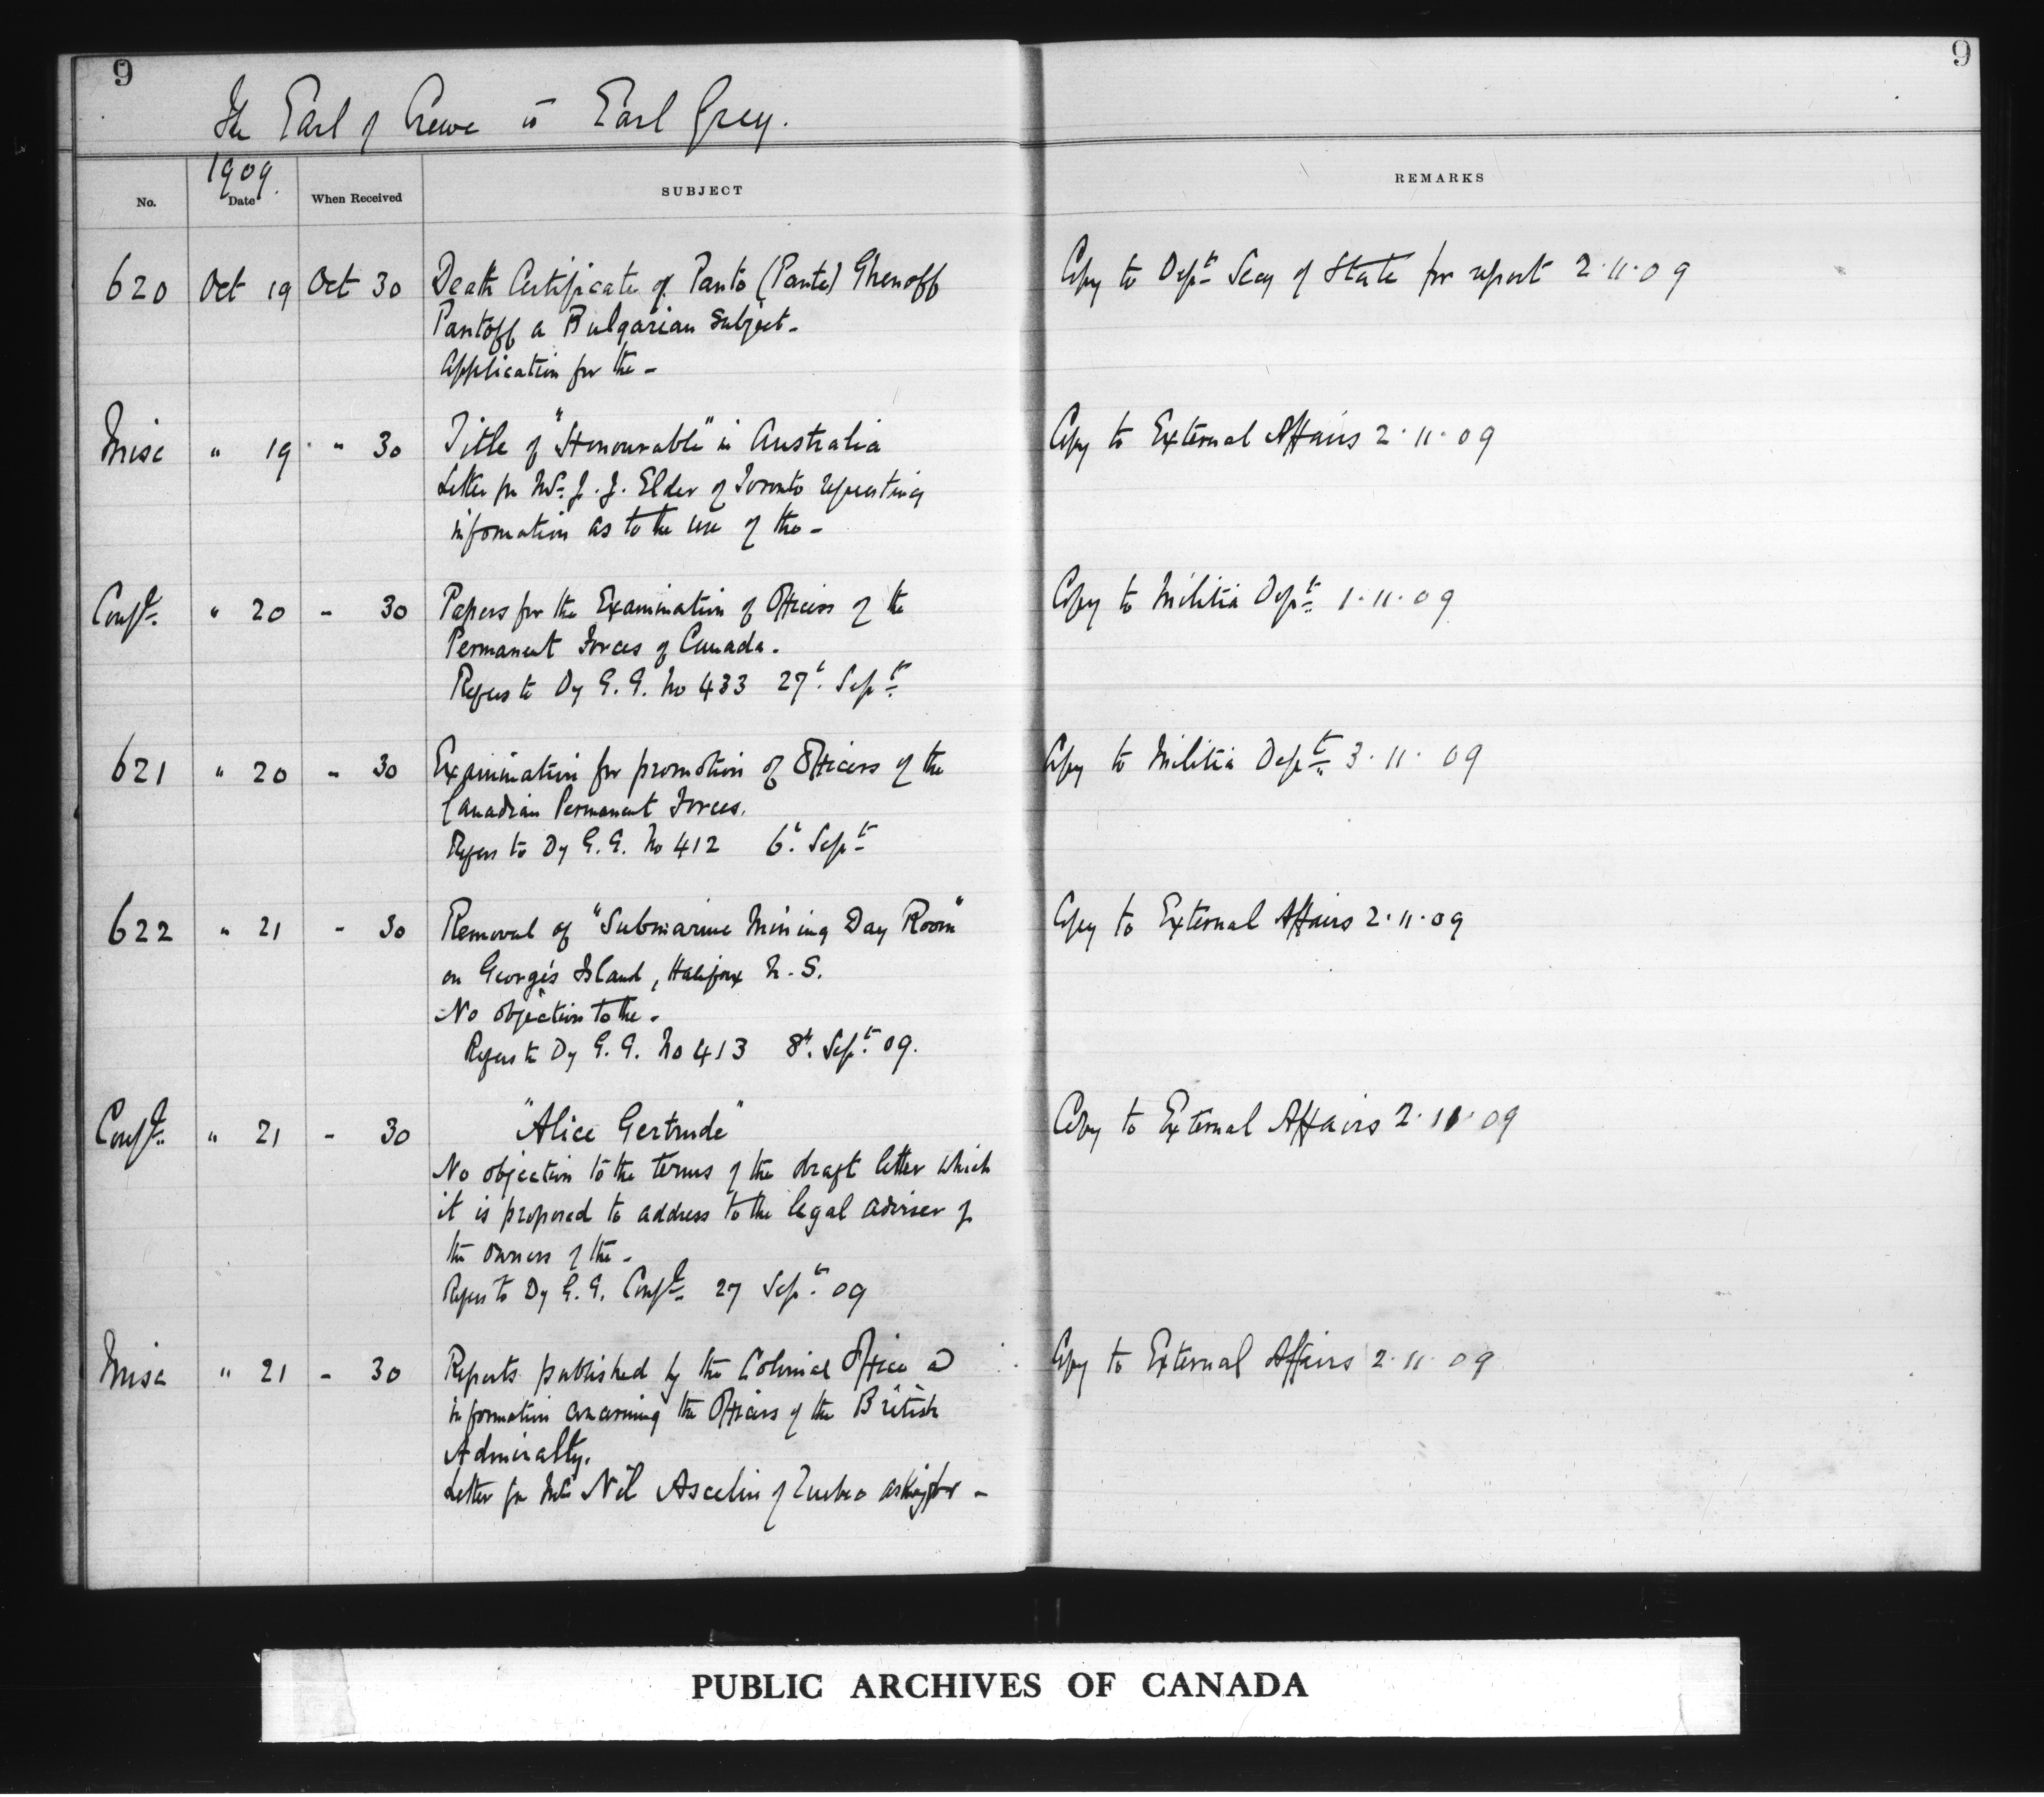 9
9
The Earl of Crewe to Earl Grey.
1909.
No. Date When Received SUBJECT REMARKS
620 Oct 19 Oct 30 Death Certificate of Panto (Pante) Ghenoff Copy to Deptt Secy of State for report 2.11.09
Pantoff a Bulgarian Subject-
Application for the -
Misc " 19 " 30 Title of "Honourable" in Australia Copy to External Affairs 2.11.09
Letter fm Mr J. J. Elder of Toronto requesting
information as to the use of the -
Confl. " 20 - 30 Papers for the Examination of Officers of the Copy to Militia Deptt 1.11.09
Permanent Forces of Canada.
Refers to Dy G. G. No 433 27t. Septt
621 " 20 - 30 Examination for promotion of Officers of the Copy to Militia Deptt 3.11.09
Canadian Permanent Forces.
Refers to Dy G. G. No 412 6t. Septt
622 " 21 - 30 Removal of "Submarine Mining Day Room" Copy to External Affairs 2.11.09
on George's Island, Halifax N. S.
No objection to the -
Refers to Dy G. G. No 413 8t. Septt 09.
Confl. " 21 - 30 "Alice Gertrude" Copy to External Affairs 2.11.09
No objection to the terms of the draft letter which
it is proposed to address to the legal adviser of
the owners of the -
Refers to Dy G. G. Confl. 27 Septt 09
Misc " 21 - 30 Reports published by the Colonial Office & Copy to External Affairs 2.11.09
information concerning the Officers of the British
Admiralty.
Letter fm Mr Nil Ascelin of Quebec asking for -
PUBLIC ARCHIVES OF CANADA